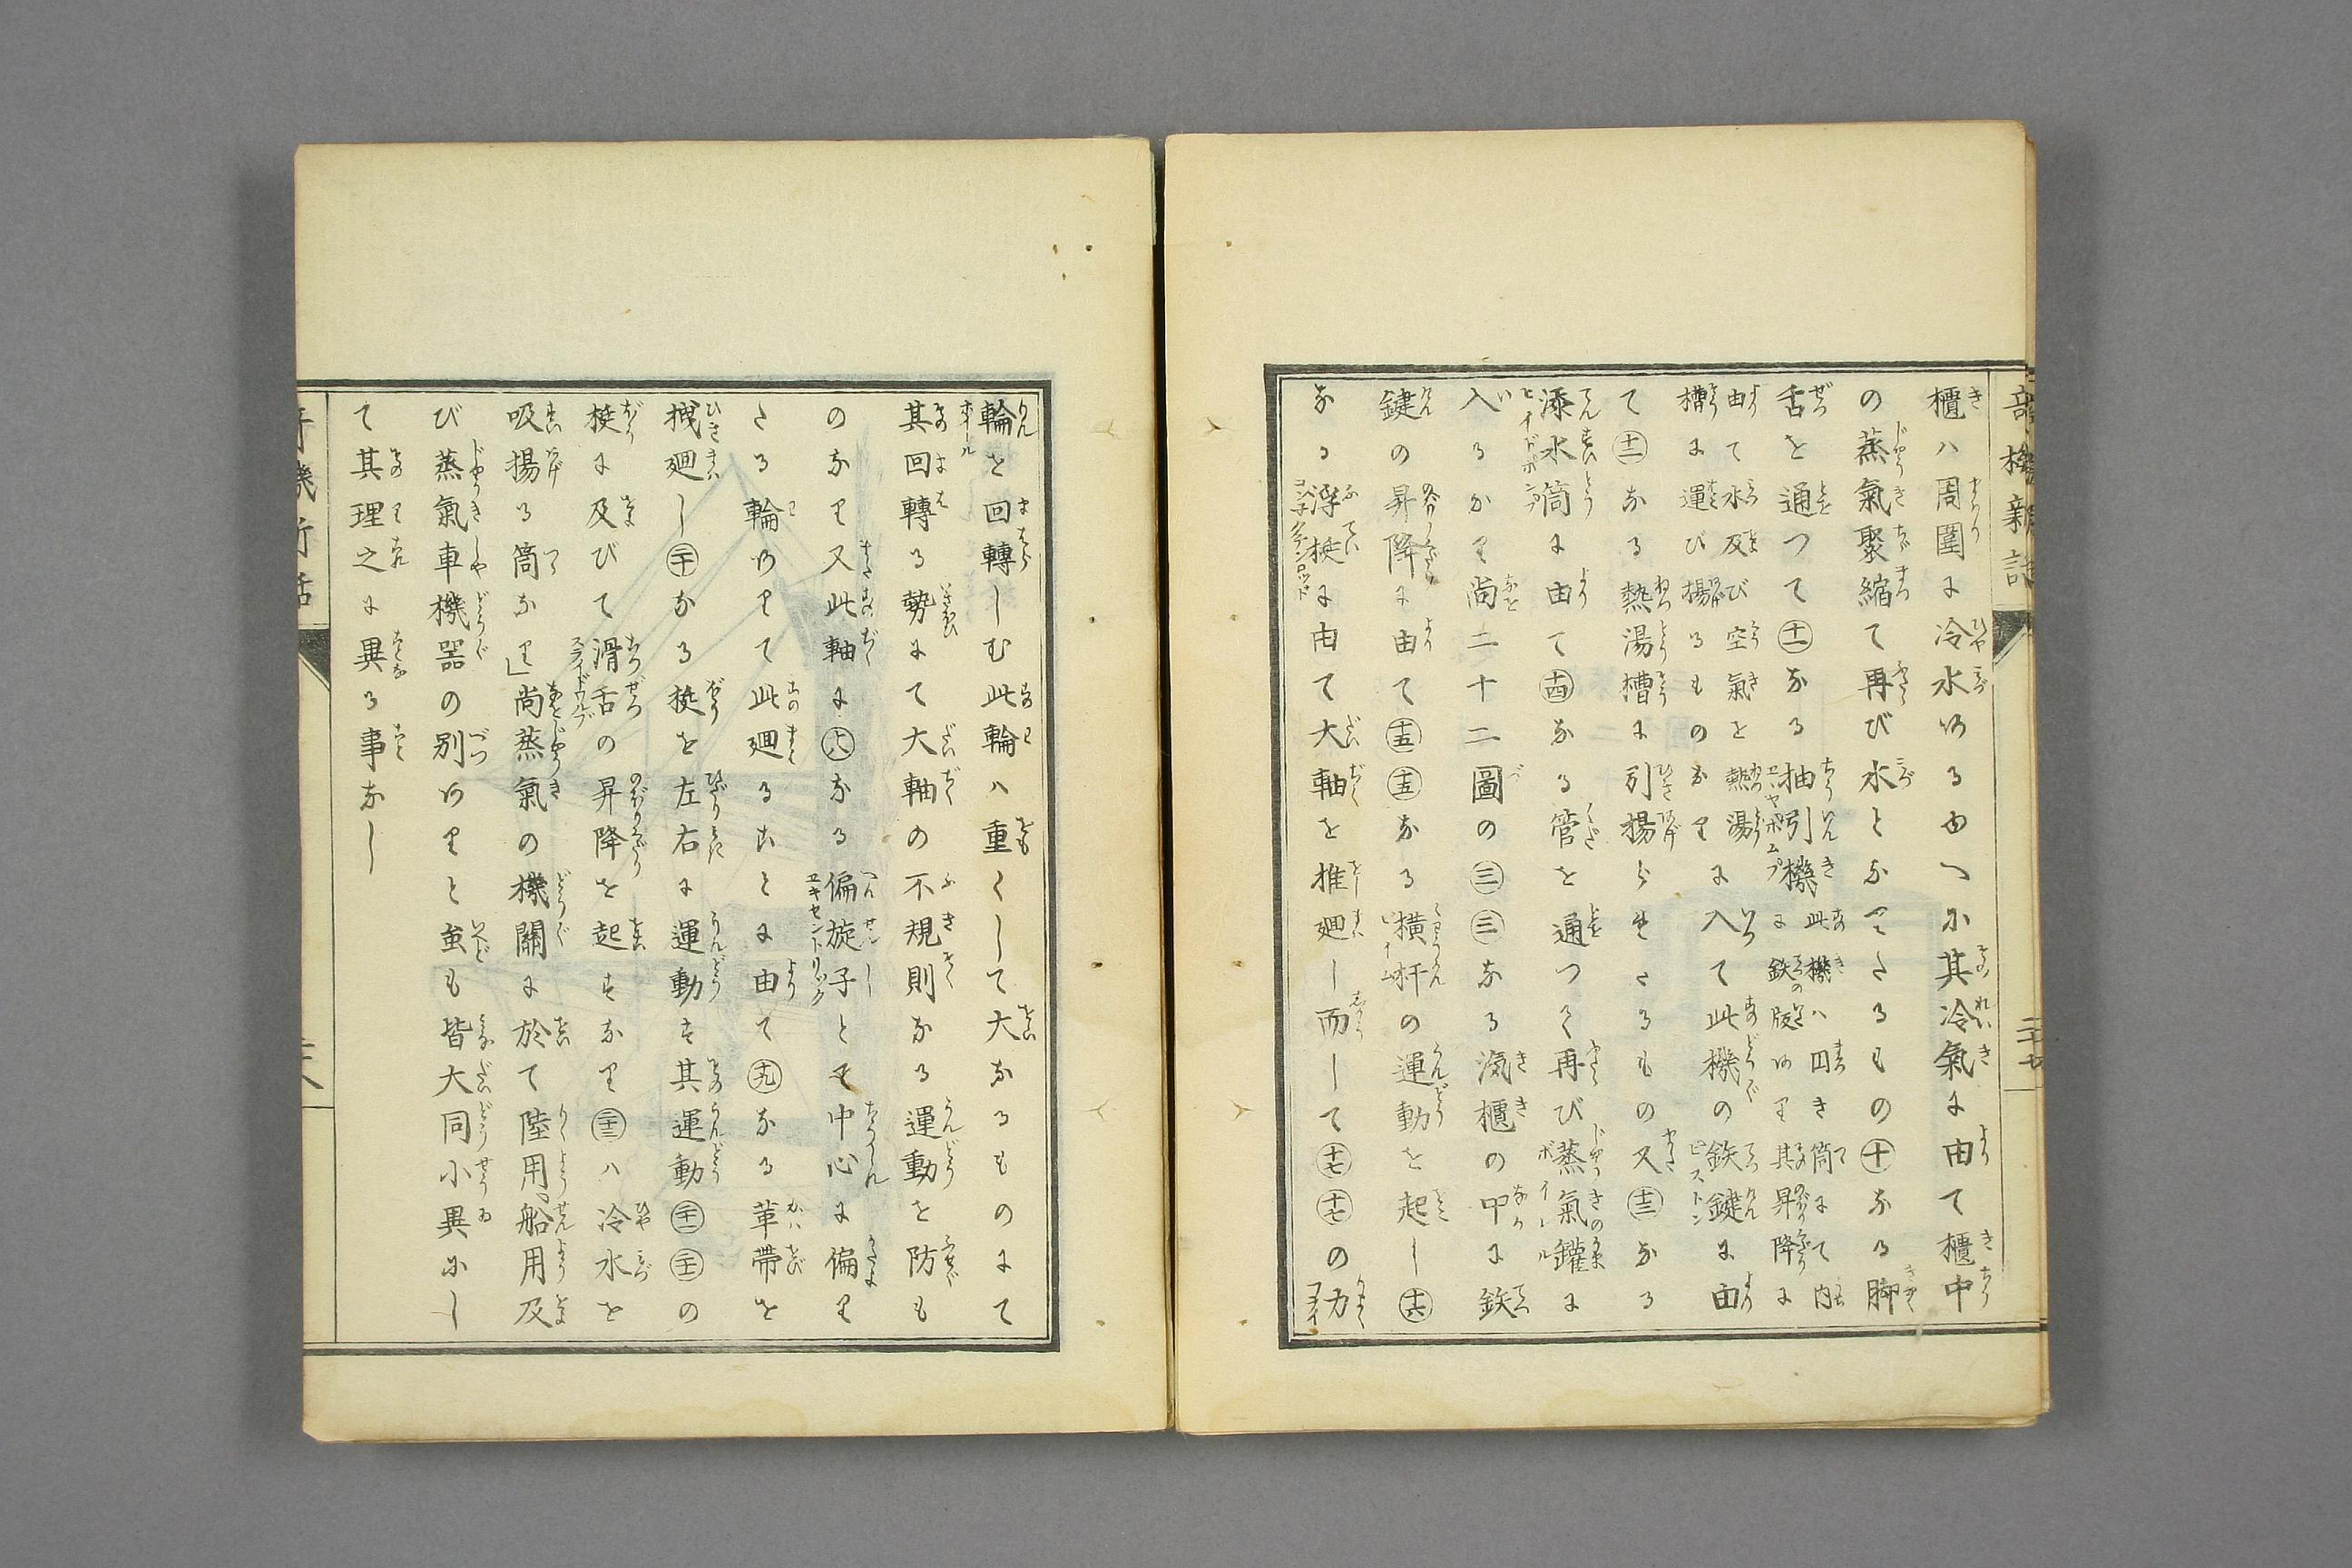 櫃ハ周圍に冷水ある由へに其冷氣に由て櫃中
の蒸氣聚縮て再び水となりたるもの㊉なる脚
舌を通つて⑪なる抽引機に此機ハ四き筒にて内
鉄の版あり其昇降に
由て水及び空氣を熱湯
槽に運び揚るものなり
に入て此機の鉄鍵に由
て⑫なる熱湯槽に引揚らせたるもの又⑬なる
添水筒に由て⑭なる管を通つて再び蒸氣鑵に
入るなり尚二十二圖の㊂㊂なる滊櫃の中に鉄
鍵の昇降に由て⑮⑮なる横杆の運動を起し⑯
なる浮梃に由て大軸を推廻し而して⑰⑰の力
輪を回轉しむ此輪ハ重くして大なるものにて
其回轉る勢にて大軸の不規則なる運動を防も
のなり又此軸に⑱なる偏旋子とて中心に偏り
たる輪ありて此廻ることに由て⑲なる革帶を
拽廻し⑳なる梃を左右に運動す其運動㉑㉑の
梃に及びて滑舌の昇降を起すなり㉓ハ冷水を
吸揚る筒なり」尚蒸氣の機關に於て陸用船用及
び蒸氣車機器の別ありと雖も皆大同小異にし
て其理之に異る事なし